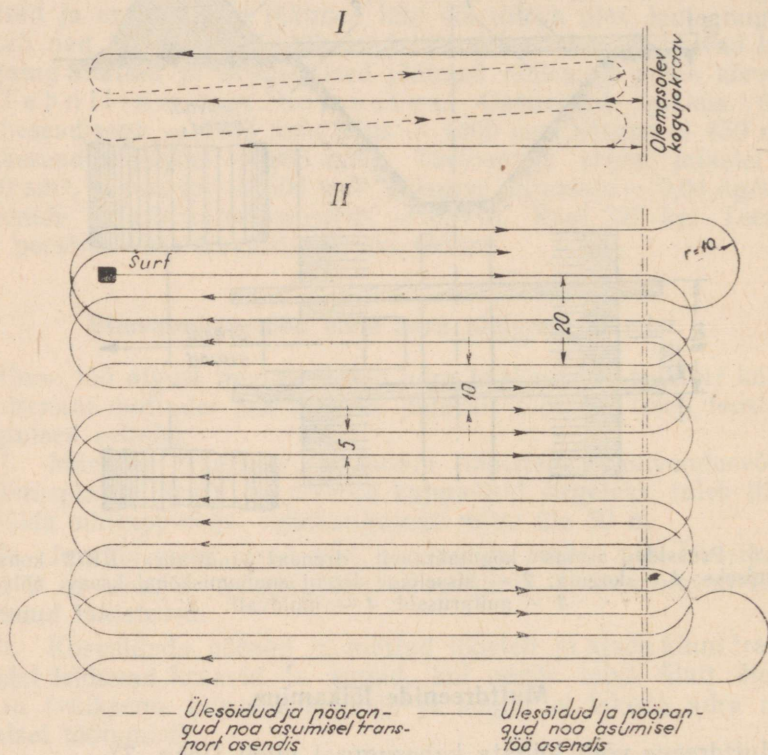 I
Olemasolev
kogujakraav
II
Šurf
r=10
20
10
5
Ülesõidud ja pööran-
gud noa asumisel trans-
port asendis
Ülesõidud ja pööran-
gud noa asumisel
töö asendis